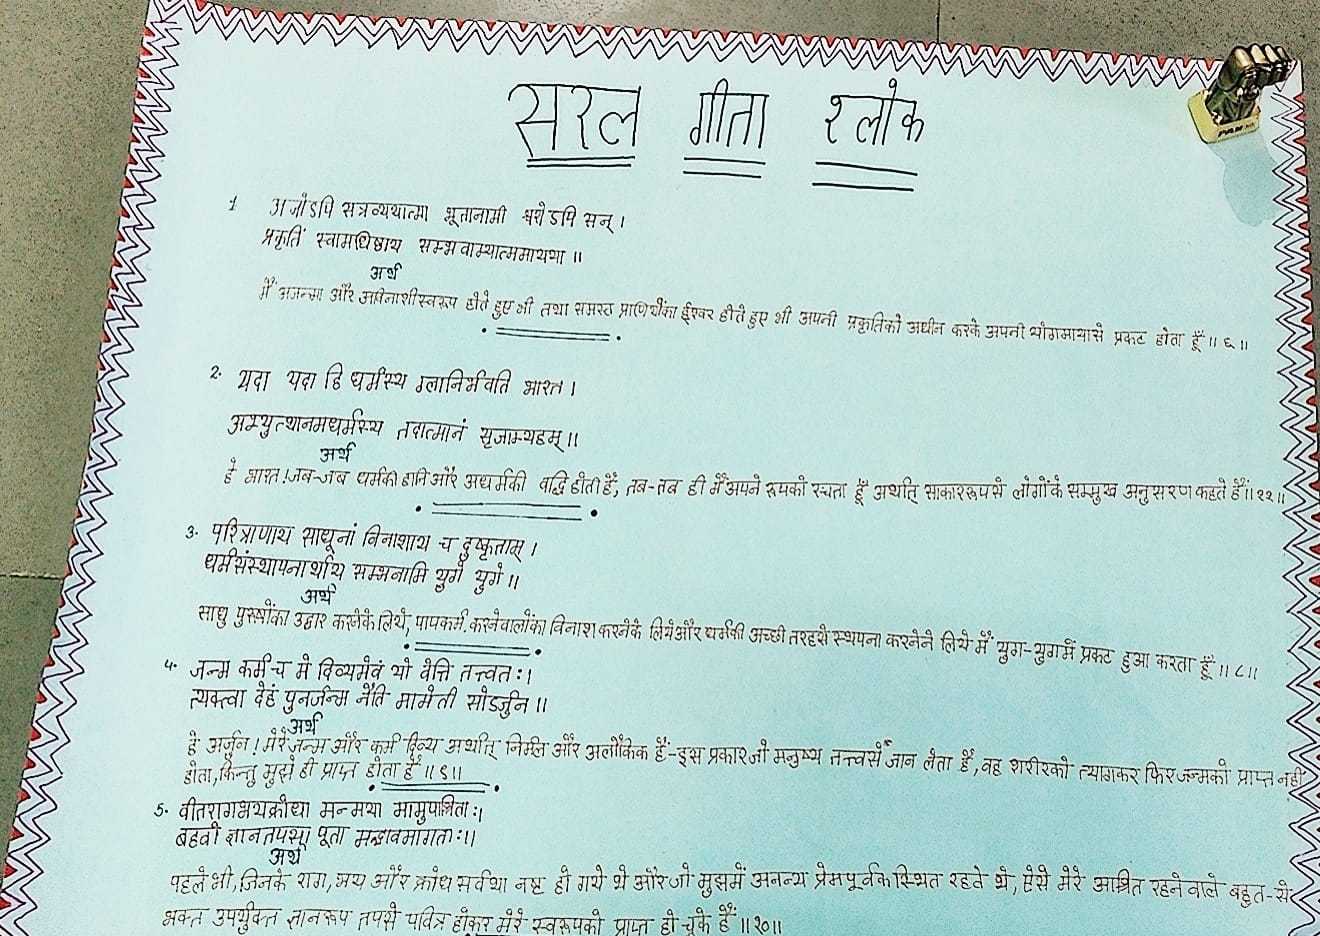 सरल गीता श्लोक
1 अजोऽपि सन्नव्ययात्मा भूतानामी श्वरोऽपि सन् ।
प्रकृतिं स्वामधिष्ठाय सम्भवाम्यात्ममायया ॥
अर्थ
मैं अजन्मा और अविनाशीस्वरूप होते हुए भी तथा समस्त प्राणियोंका ईश्वर होते हुए भी अपनी प्रकृतिको अधीन करके अपनी योगमायासे प्रकट होता हूँ ॥६॥
2. यदा यदा हि धर्मस्य ग्लानिर्भवति भारत ।
अभ्युत्थानमधर्मस्य तदात्मानं सृजाम्यहम् ॥
अर्थ
हे भारत! जब-जब धर्मकी हानि और अधर्मकी वद्धि होती है, तब-तब ही मैं अपने रूपको रचता हूँ अर्थात् साकाररूपसे लोगोंके सम्मुख अनुसरण कहते हैं॥११॥
3. परित्राणाय साधूनां विनाशाय च दुष्कृताम् ।
धर्मसंस्थापनार्थाय सम्भनामि युगे युगे ॥
अर्थ
साधु पुरुषोंका उद्वार करनेके लिये, पापकर्म करनेवालोंका विनाश करनेके लिये और धर्मकी अच्छी तरहसे स्थपना करनेने लिये मैं युग-युगमें प्रकट हुआ करता हूँ ॥८॥
4. जन्म कर्म च मे दिव्यमेवं यो वेत्ति तत्त्वतः।
त्यक्त्वा देहं पुनर्जन्म नैति मामेती सोऽर्जुन ॥
अर्थ
हे अर्जुन! मेरे जन्म और कर्म दिव्य अर्थात् निर्मल और अलौकिक हैं-इस प्रकार जो मनुष्य तत्त्वसे जान लेता है, वह शरीरको त्यागकर फिर जन्मको प्राप्त नहीं
होता, किन्तु मुझे ही प्राप्त होता है ॥९॥
5. वीतरागभयक्रोधा मन्मया मामुपाश्रिताः।
बहवो ज्ञानतपसा पूता मद्भावमागताः॥
अर्थ
पहले भी, जिनके राग, भय और क्रोध सर्वथा नष्ट हो गये थे और जो मुझमें अनन्य प्रेमपूर्वक स्थित रहते थे, ऐसे मेरे आश्रित रहने वाले बहुत-से
भक्त उपर्युक्त ज्ञानरूप तपसे पवित्र होकर मेरे स्वरूपको प्राप्त हो चुके हैं ॥१०॥